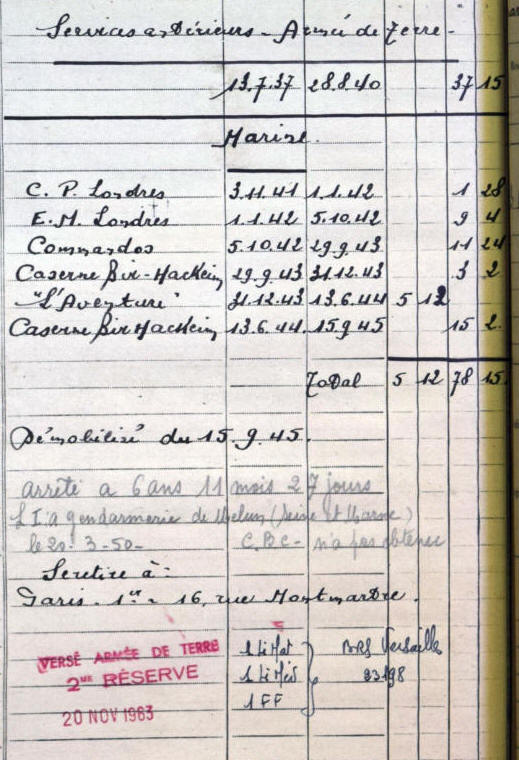 Services antérieurs - Armée de Terre -
13.7.37 28.8.40 37 15
Marine.
C. P. Londres 3.11.41 1.1.42 1 28
E.M. Londres 1.1.42 5.10.42 9 4
Commandos 5.10.42 29.9.43 11 24
Caserne Bir-Hackeim 29.9.43 31.12.43 3 2
"L'Aventure" 31.12.43 13.6.44 5 12
Caserne Bir Hackeim 13.6.44 15.9.45 15 2
Total 5 12 78 15
Démobilisé du 15.9.45.
arrêté a 6 ans 11 mois 27 jours
gendarmerie de Melun (Seine et Marne)
le 20-3-50- C.B.C- n'a pas obtenue
Se retire à :
Paris. 1er - 16, rue Montmartre.
VERSÉ ARMÉE DE TERRE
2ME RÉSERVE
20 NOV 1963
1 Li Mat } BRS Versailles
1 Li 23198
1 FF